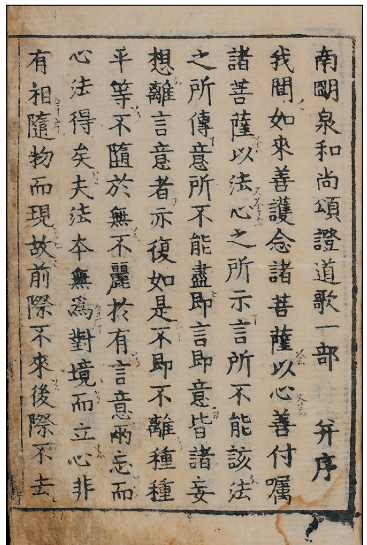 南明泉和尚頌證道歌一部　并序
我聞如來善護念諸菩薩以心善付囑
諸菩薩以法心之所示言所不能該法
之所傳意所不能盡即言即意皆諸妄
想離言意者亦復如是不即不離種種
平等不隨於無不麗於有言意兩忘而
心法得矣夫法本無為對境而立心非
有相隨物而現故前際不來後際不去